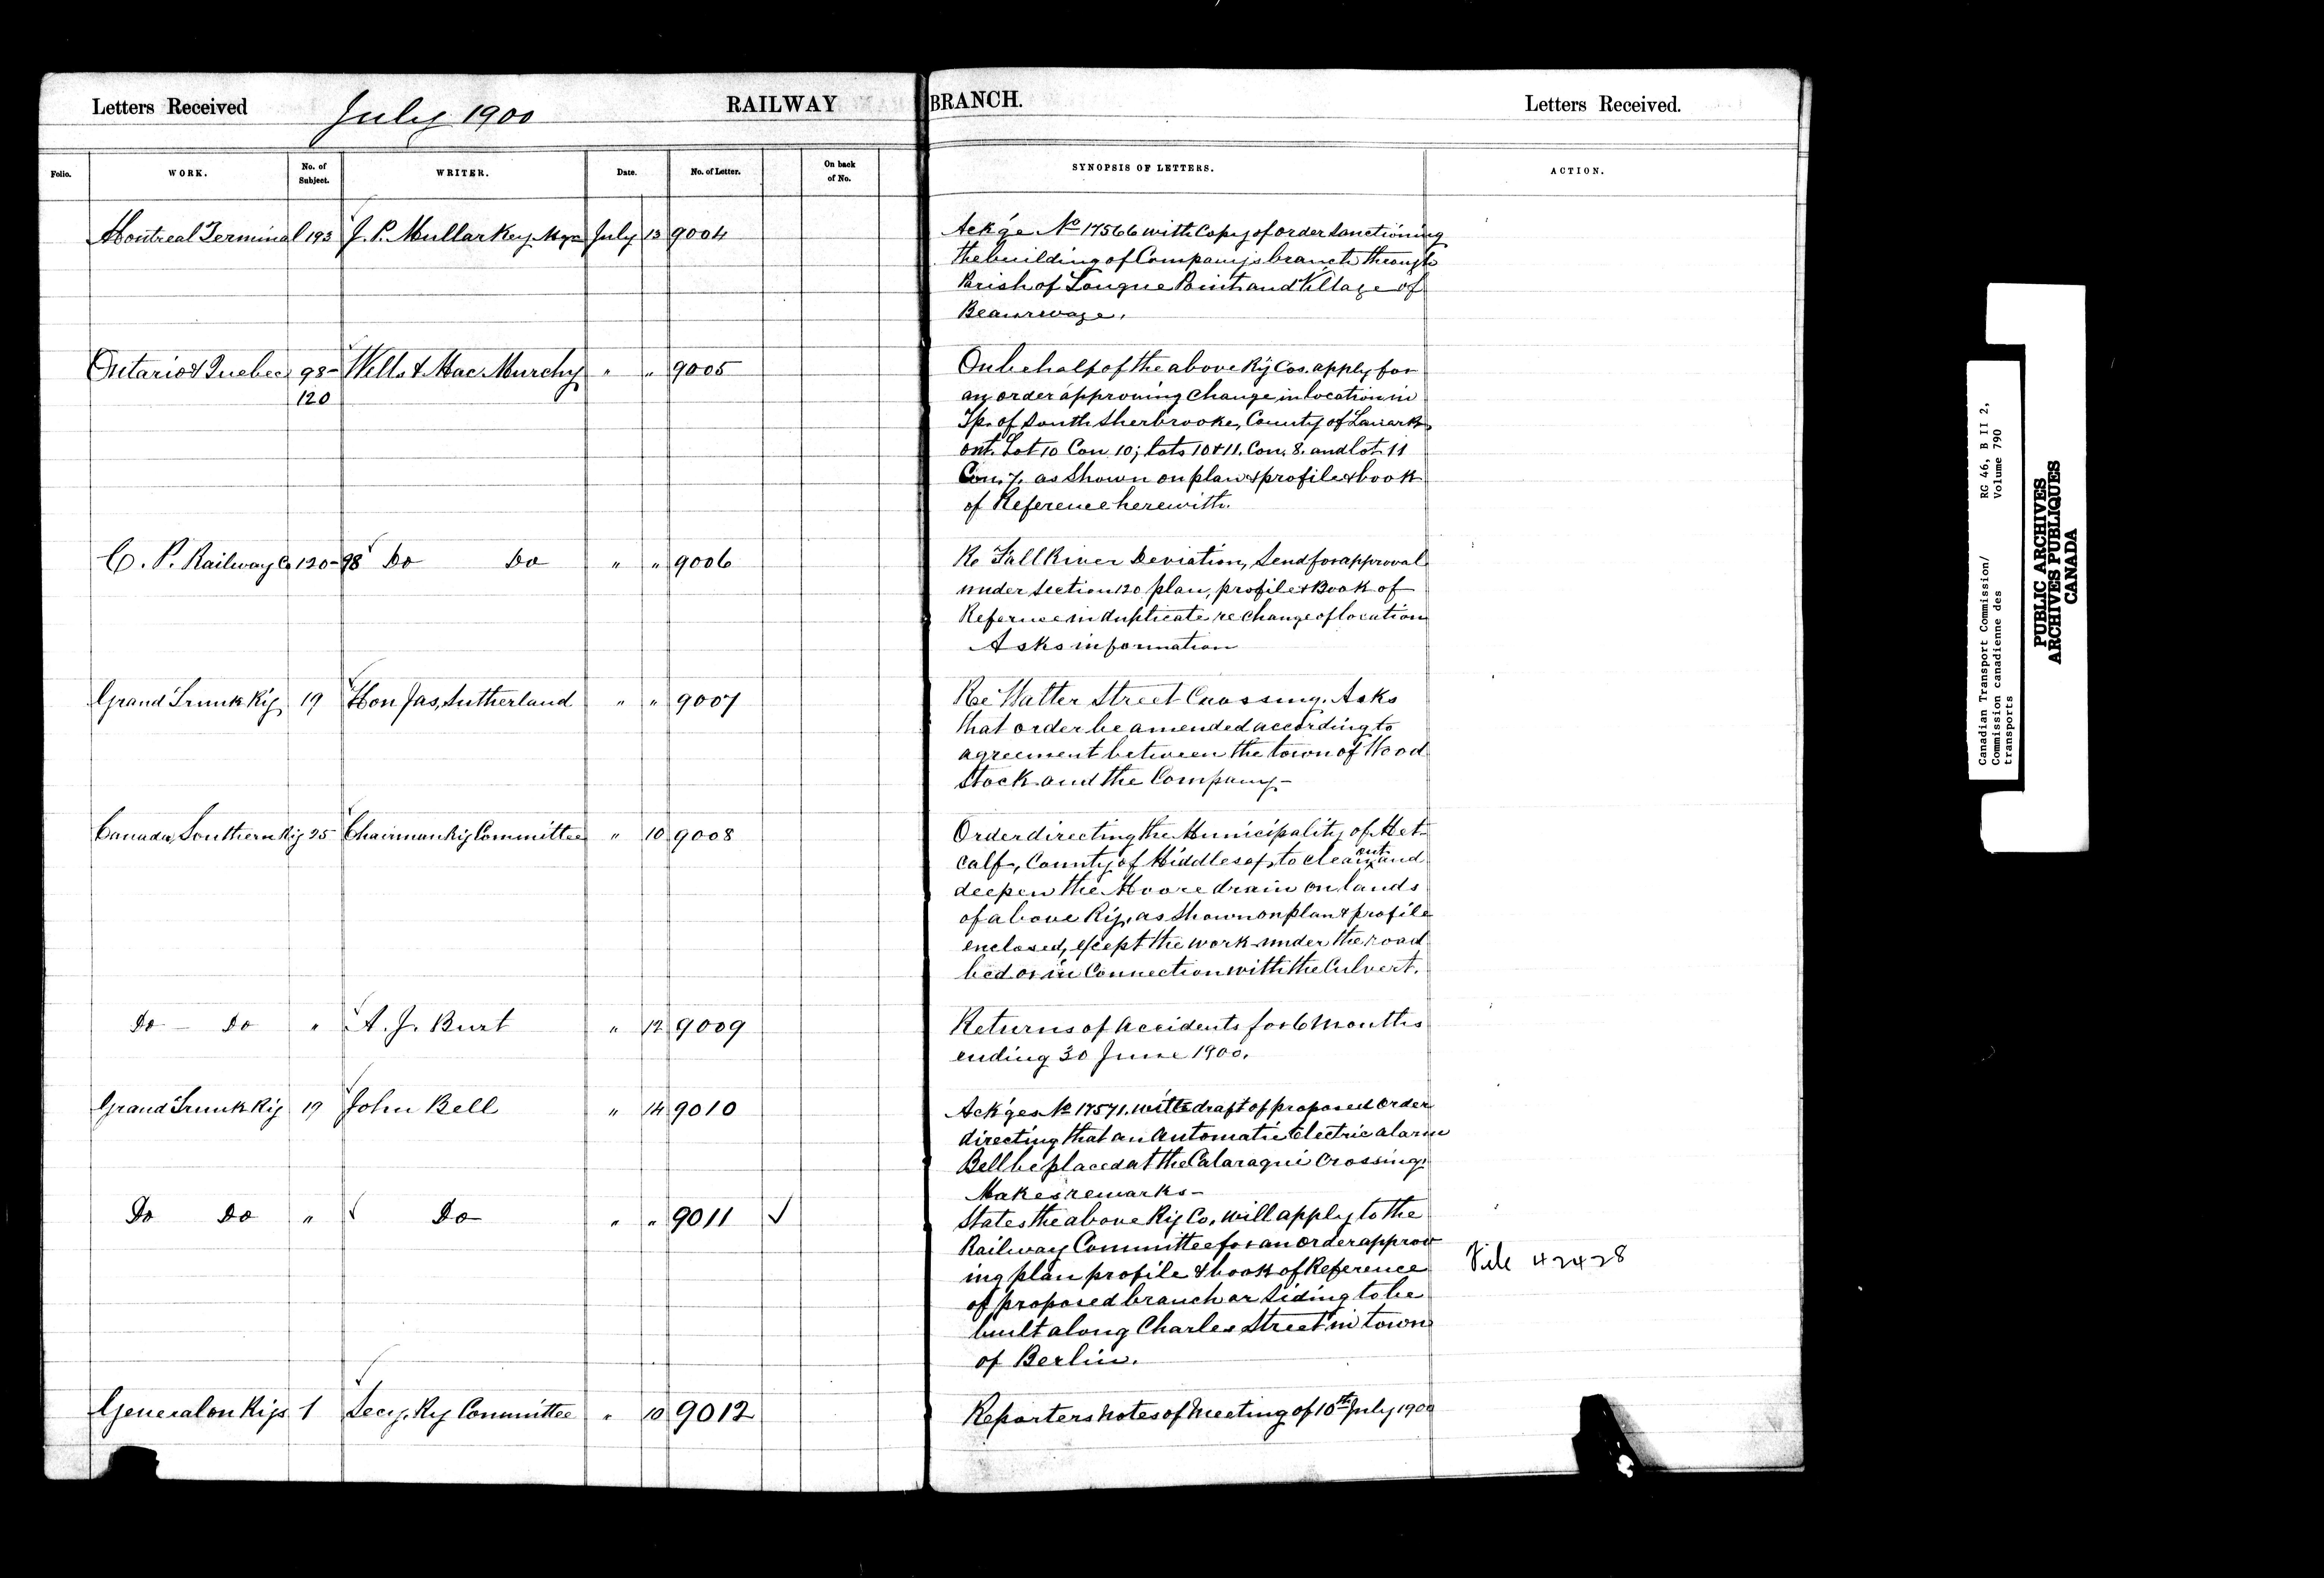 Letters Received July 1900 RAILWAY BRANCH. Letters Received.
Folio. WORK. No. of Subject. WRITER. Date. No. of Letter. On back of No. SYNOPSIS OF LETTERS. ACTION.
Montreal Terminal 193 J. P. Mullarkey Mgr July 13 9004 Ack'ge No 17566 with Copy of order Sanctioning
the building of Company's branch through
Parish of Longue Point and Village of
Ontario & Quebec 98- Wells & MacMurchy " " 9005 On behalf of the above Ry Cos. apply for
120 an order approving Change in location in
Tp. of South Sherbrooke, County of Lanark
Ont. Lot 10 Con 10; lots 10 & 11. Con. 8. and lot 11
Con. 7. as Shown on plan & profile & book
of Reference herewith.
C. P. Railway Co 120-98 Do Do " " 9006 Re Fall River Deviation, Send for approval
under Section 120 plan, profile & Book of
Refernce in duplicate re Change of location
Asks information
Grand Trunk Ry 19 Hon Jas. Sutherland " " 9007 Re Watter Street Crossing. Asks
that order be amended according to
agreement between the town of Wood
Stock and the Company-
Canada Southern Ry 25 Chairman Ry Committee " 10 9008 Order directing the Municipality of Met-
calf, County of Middlesex, to clean out and
deepen the Moore drain on lands
of above Ry. as Shown on plan & profile
enclosed, except the work under the road
bed or in Connection with the Culvert.
Do - Do " A. J. Burt " 12 9009 Returns of Accidents for 6 Months
ending 30 June 1900.
Grand Trunk Ry 19 John Bell " 14 9010 Ack'ges No 17571. with draft of proposed Order
directing that an Automatic Electric alarm
Bell be placed at the Cataraqui Crossing.
Makes remarks-
Do Do " Do " " 9011 ✓ States the above Ry Co. will apply to the
Railway Committee for an order approv
ing plan profile & book of Reference File 42428
of proposed branch or Siding to be
built along Charles Street in town
of Berlin.
General on Rys 1 Secy. Ry Committee " 10 9012 Reporters notes of Meeting of 10th July 1900
Canadian Transport Commission/ RG 46, B II 2,
Commission canadienne des Volume 790
transports
PUBLIC ARCHIVES
ARCHIVES PUBLIQUES
CANADA